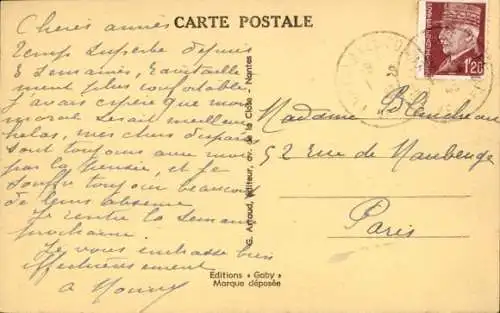 CARTE POSTALE
Chères amies
Temps superbe depuis
3 semaines, ravitaille
ment plus confortable
J'avais espéré que mon
moral serait meilleur
hélas, mes chers disparus
sont toujours avec moi
par la pensée, et je
souffre toujours beaucoup
de leur absence
Je rentre la semaine
prochaine.
Je vous embrasse bien
affectueusement
G. Artaud, Editeur, av. de la Close - Nantes
Editions « Gaby »
Marque déposée
1'20
Madame Blancheau
52 Rue de Maubeuge
Paris